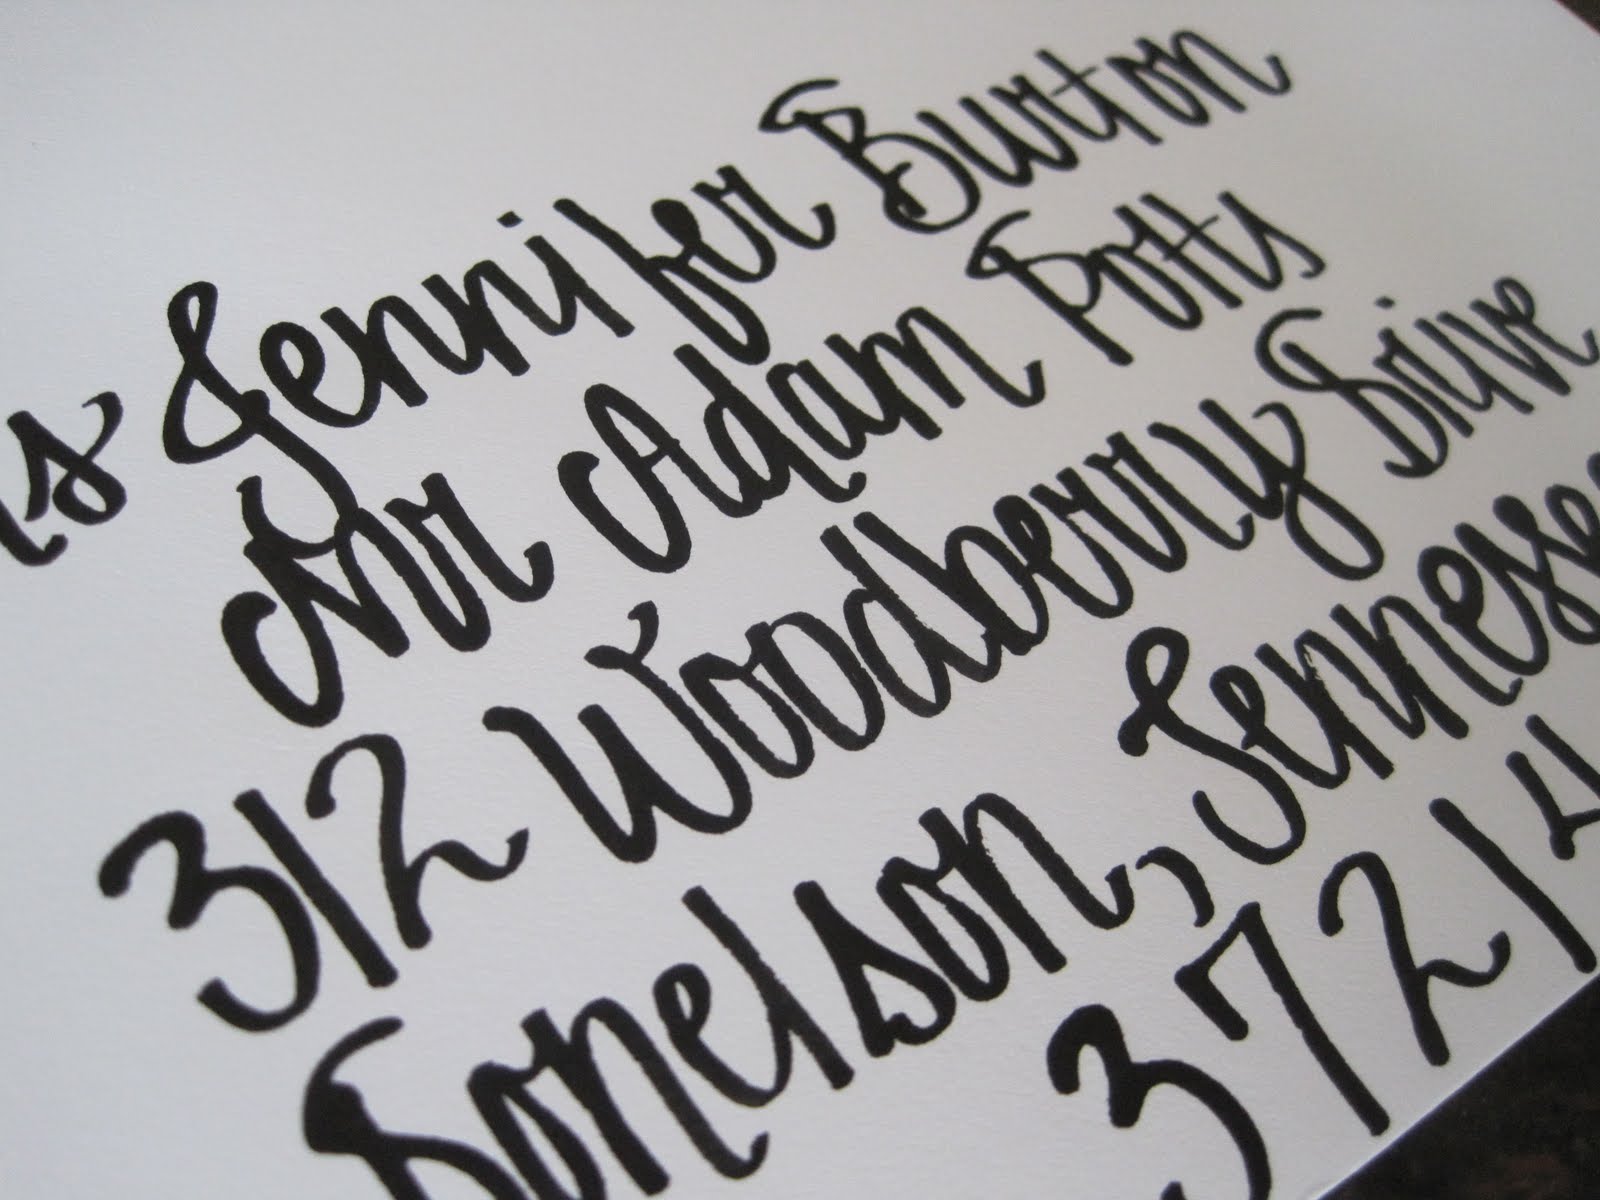 s Jennifer Burton
Mr Adam Potts
312 Woodberry Drive
Donelson, Tennesse
37214